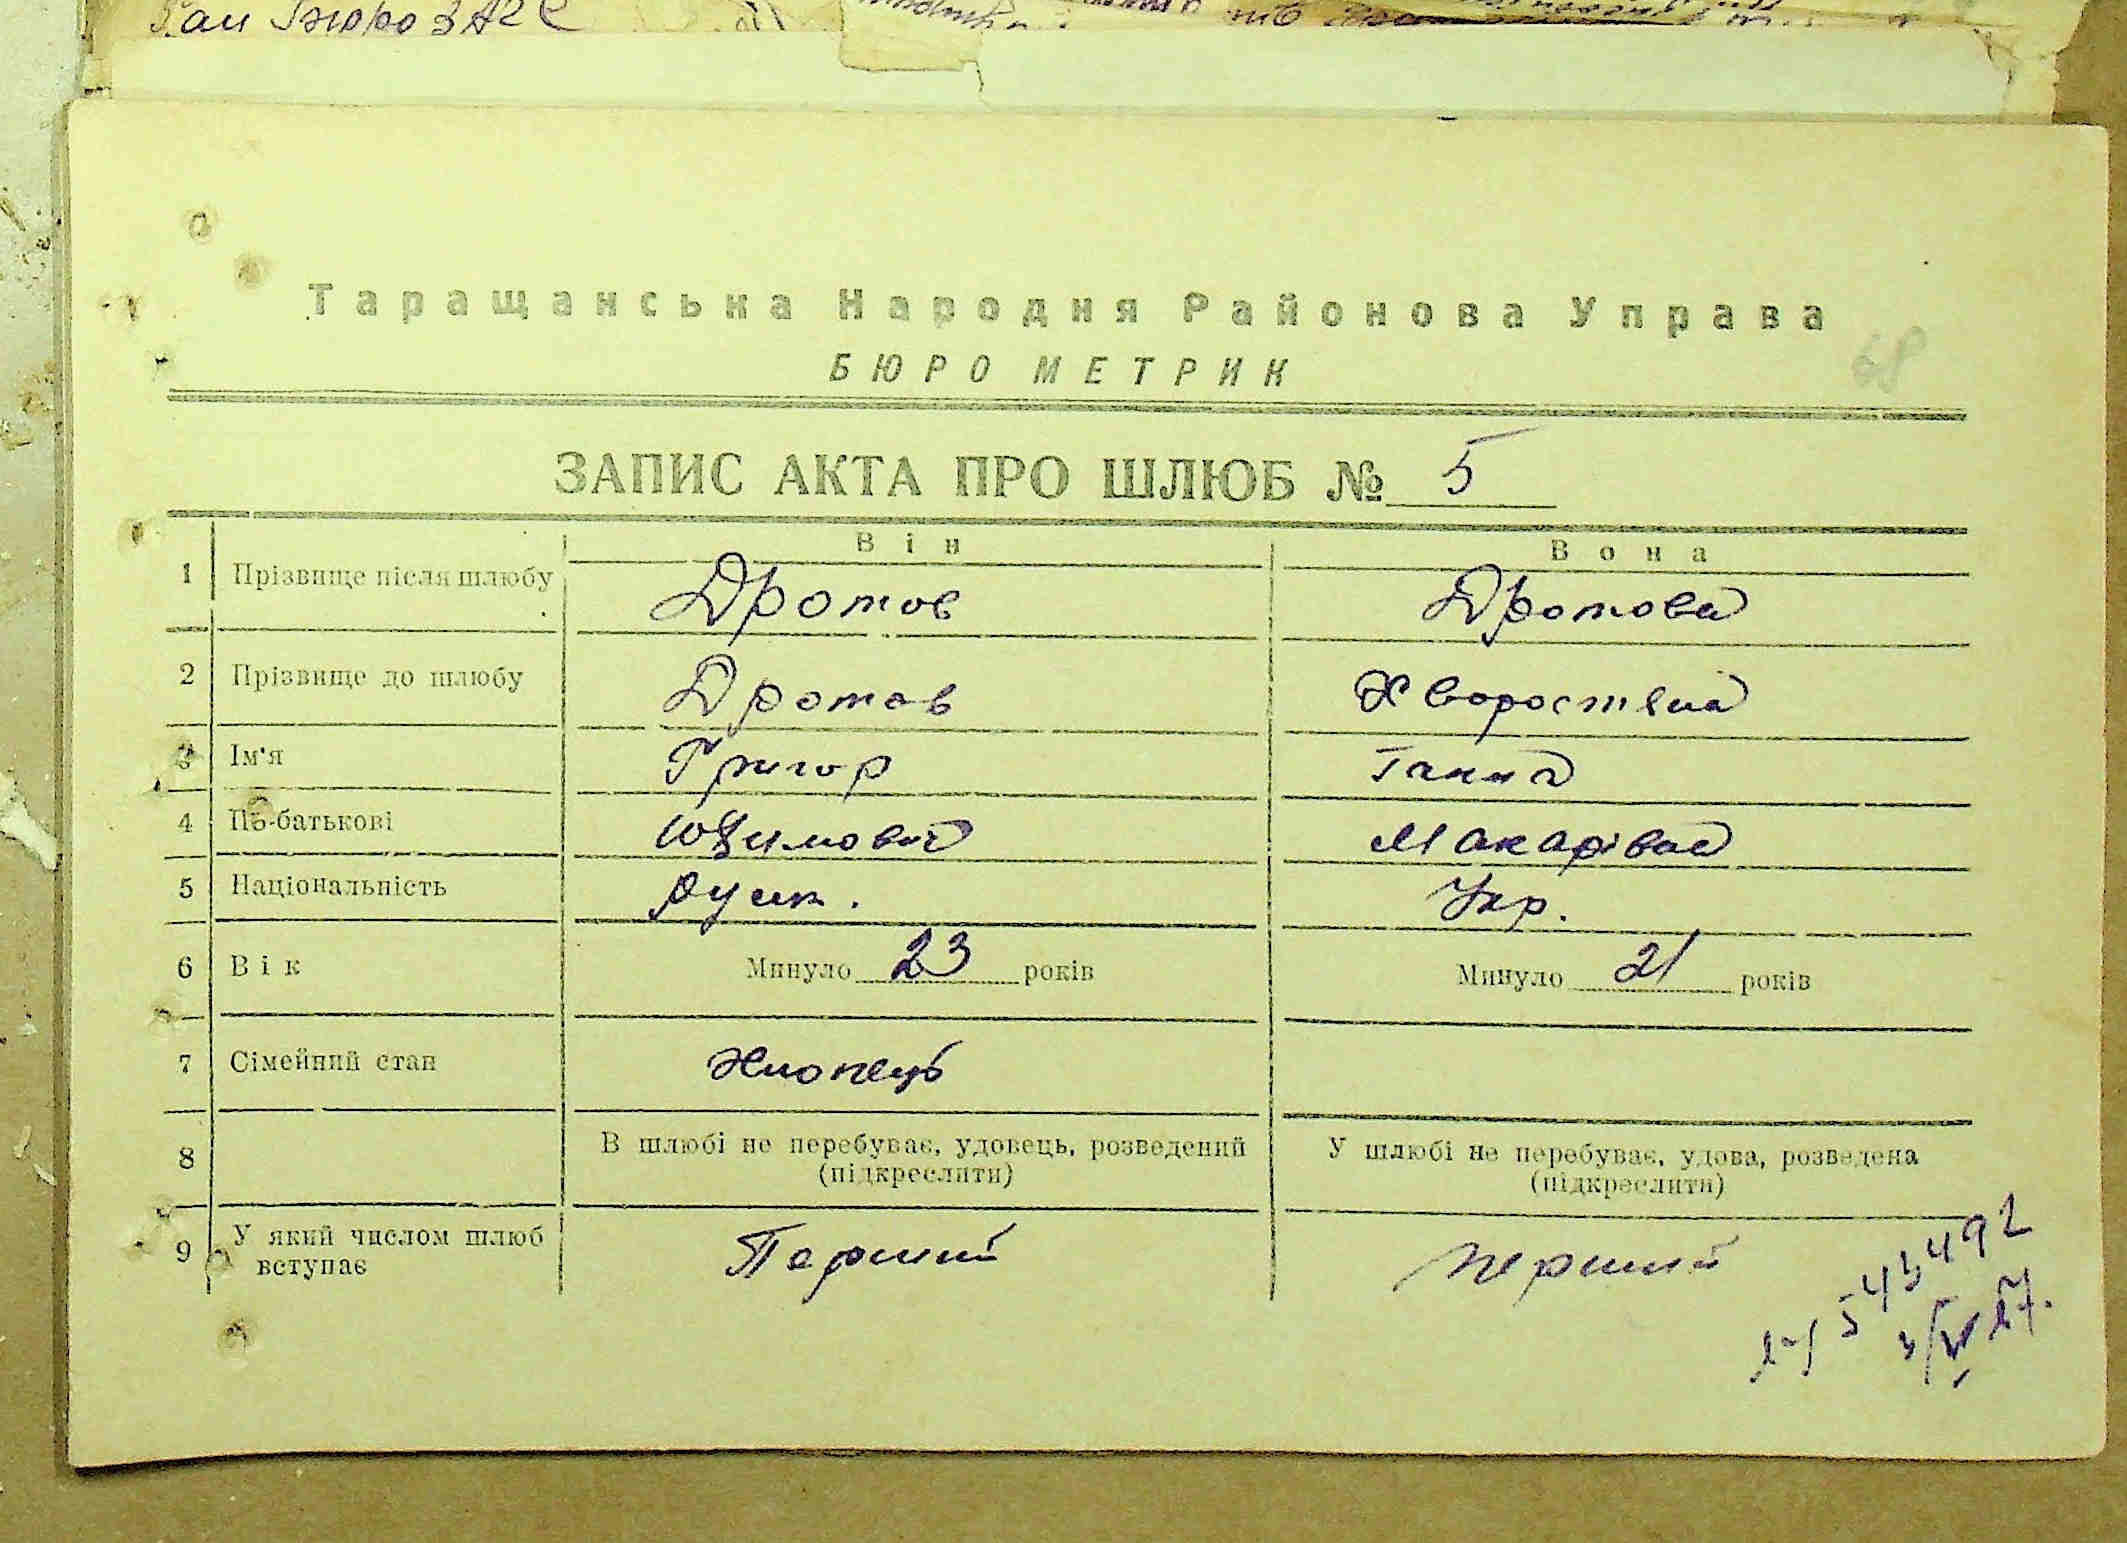 Рай Бюро ЗАГС
Таращанська Народня Районова Управа
БЮРО МЕТРИК
68
ЗАПИС АКТА ПРО ШЛЮБ № 5
Він Вона
1 Прізвище після шлюбу Дротов Дротова
2 Прізвище до шлюбу Дротов Хворостяна
3 Ім'я Григор Ганна
4 По-батькові Юхимович Макарівна
5 Національність руск. Укр.
6 Вік Минуло 23 років Минуло 21 років
7 Сімейний стан Хлопець
8 В шлюбі не перебуває, удовець, розведений У шлюбі не перебуває, удова, розведена
(підкреслити) (підкреслити)
9 У який числом шлюб Перший перший
вступає